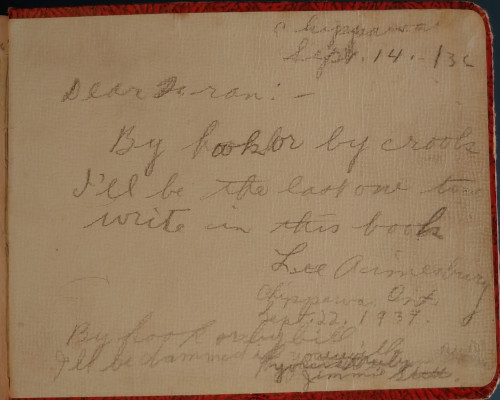 Chippawa
Sept. 14. - /36
Dear Doran: -
By hook or by crook
I'll be the last one to
write in this book
Lee
Chippawa. Ont.
Sept. 22. 1939.
By hook or by bill
I'll be dammed if you will
Jimmie